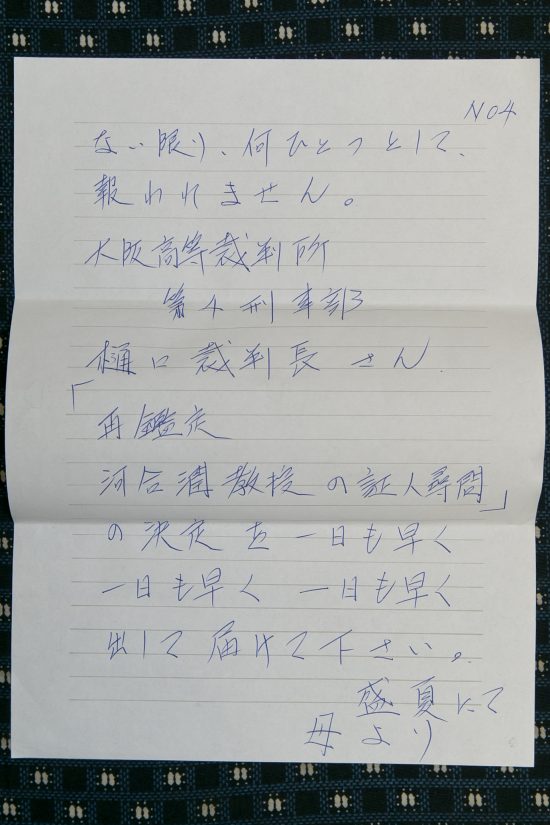 NO4
ない限り、何ひとつとして、
報われません。
大阪高等裁判所
第4刑事部
樋口裁判長さん
「
再鑑定
河合潤教授の証人尋問」
の決定を一日も早く
一日も早く 一日も早く
出して届けて下さい。
盛夏にて
母より